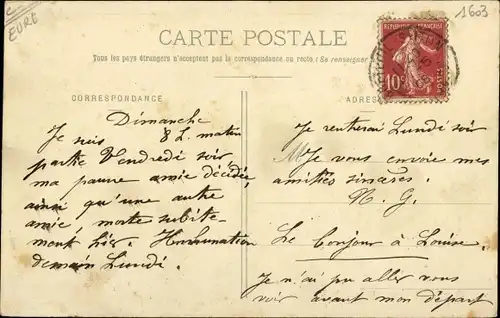 EURE
1603
CARTE POSTALE
Tous les pays étrangers n'acceptent pas la correspondance au recto : Se renseigner
RÉPUBLIQUE FRANÇAISE
10c
POSTES
CORRESPONDANCE
ADRES
Dimanche
8 h. matin
Je suis
partie Vendredi soir
ma pauvre amie décédée,
ainsi qu'une autre
amie, morte subite-
ment hier. Inhumation
demain Lundi.
Je rentrerai Lundi soir
Je vous envoie mes
amitiés sincères.
N. G.
Le bonjour à Louise.
Je n'ai pu aller vous
voir avant mon départ